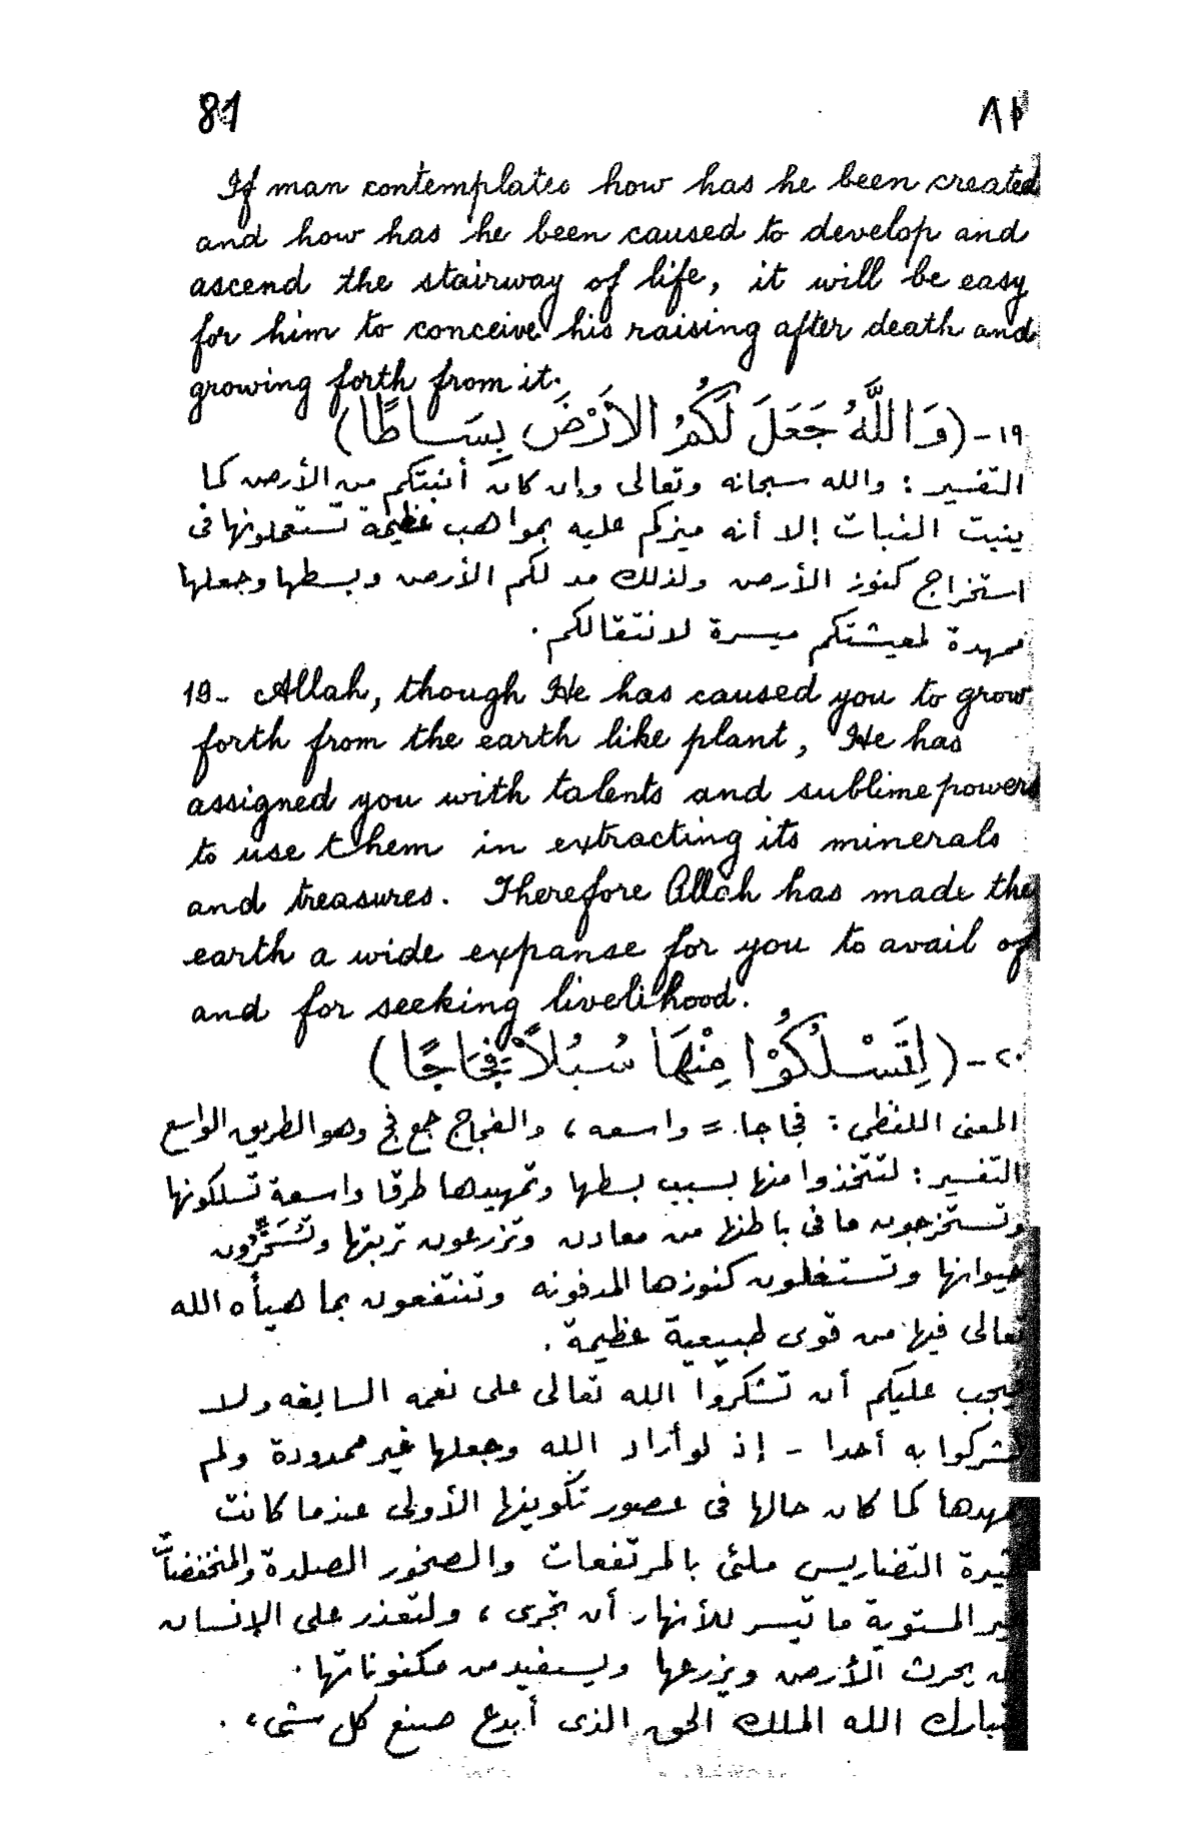 81 ٨١
If man contemplates how has he been created
and how has he been caused to develop and
ascend the stairway of life, it will be easy
for him to conceive his raising after death and
growing forth from it.
١٩ - (وَاللَّهُ جَعَلَ لَكُمُ الأَرْضَ بِسَاطًا)
التفسير : والله سبحانه وتعالى وإن كان أنبتكم من الأرض كما
ينبت النبات إلا أنه ميزكم عليه بمواهب عظيمة تستعملونها فى
استخراج كنوز الأرض ولذلك مد لكم الأرض وبسطها وجعلها
ممهدة لمعيشتكم ميسرة لانتقالكم .
19- Allah, though He has caused you to grow
forth from the earth like plant, He has
assigned you with talents and sublime powers
to use them in extracting its minerals
and treasures. Therefore Allah has made the
earth a wide expanse for you to avail of
and for seeking livelihood.
٢٠ - (لِتَسْلُكُوْا مِنْهَا سُبُلاً فِجَاجًا)
المعنى اللفظى : فجاجا = واسعه ، والفجاج جمع فج وهو الطريق الواسع
التفسير : لتتخذوا منها بسبب بسطها وتمهيدها طرقا واسعة تسلكونها
وتستخرجون ما فى باطنها من معادن وتزرعون تربتها وتُسَخِّرُون
حيوانها وتستغلون كنوزها المدفونه وتنتفعون بما هيأه الله
تعالى فيها من قوى طبيعية عظيمة .
فيجب عليكم أن تشكروا الله تعالى على نعمه السابغه ولا
تشركوا به أحدا - إذ لو أراد الله وجعلها غير ممدودة ولم
يمهدها كما كان حالها فى عصور تكوينها الأولى عندما كانت
كثيرة التضاريس ملئى بالمرتفعات والصخور الصلدة والمنخفضات
غير المستوية ما تيسر للأنهار أن تجرى ، ولتعذر على الإنسان
أن يحرث الأرض ويزرعها ويستفيد من مكنوناتها .
تبارك الله الملك الحق الذى أبدع صنع كل شىء .